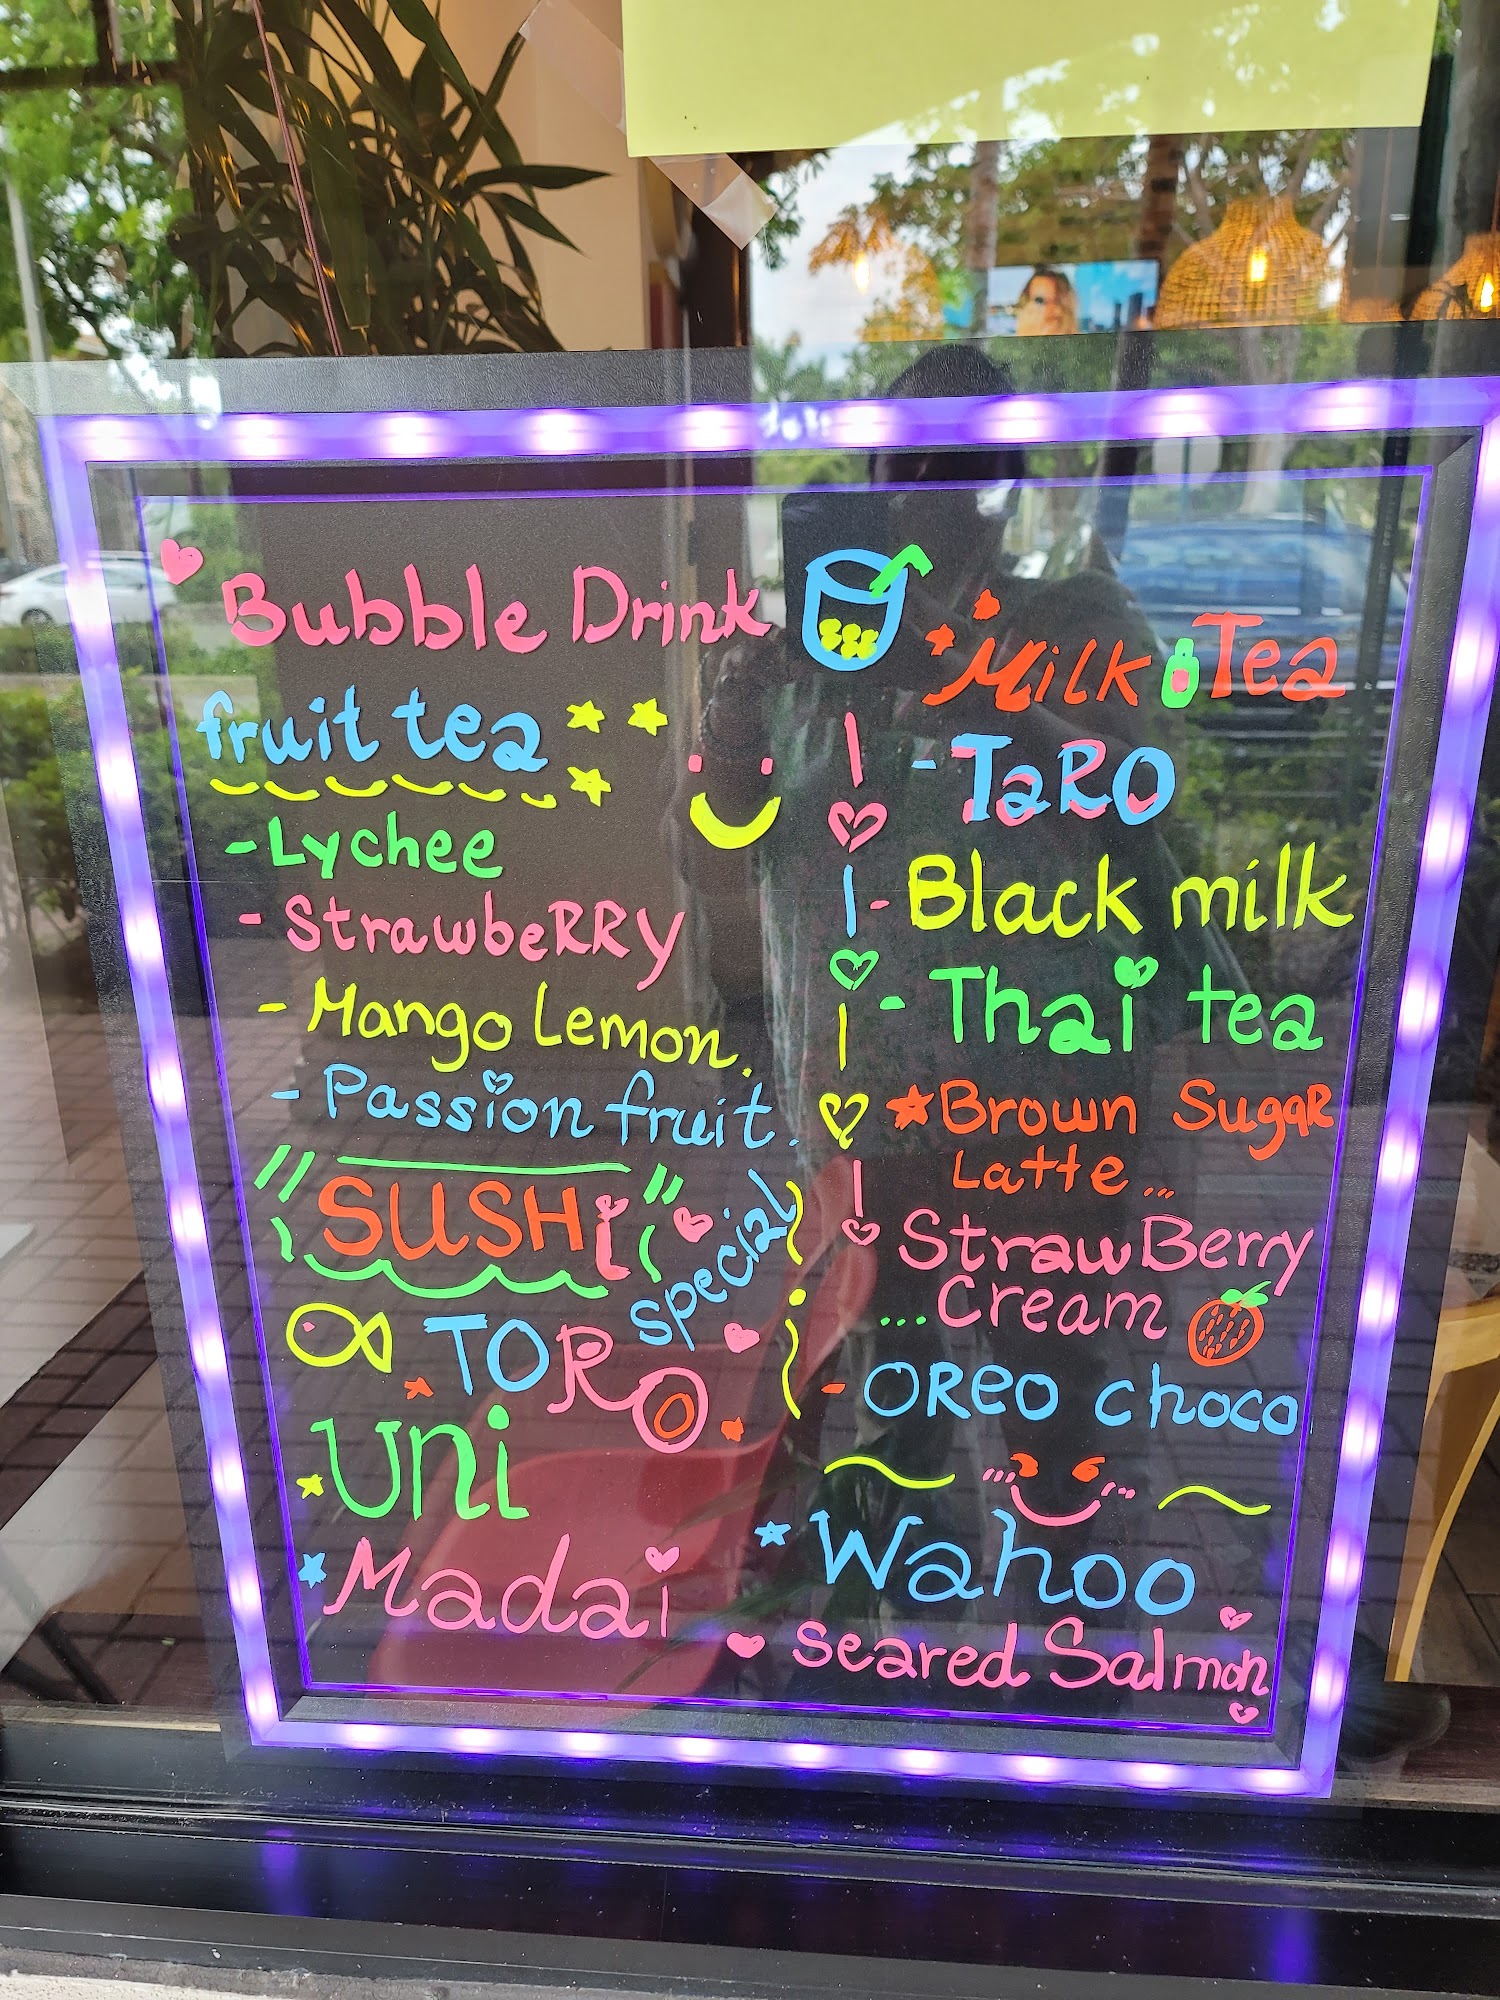 Bubble Drink
fruit tea
- Lychee
- StrawbeRRy
- Mango Lemon.
- Passion fruit.
Milk Tea
- TaRO
- Black milk
- Thai tea
Brown SugaR
Latte...
StrawBerry
... Cream
- OReo choco
SUSHi
special
TORO
Uni
Madai
Wahoo
seared Salmon